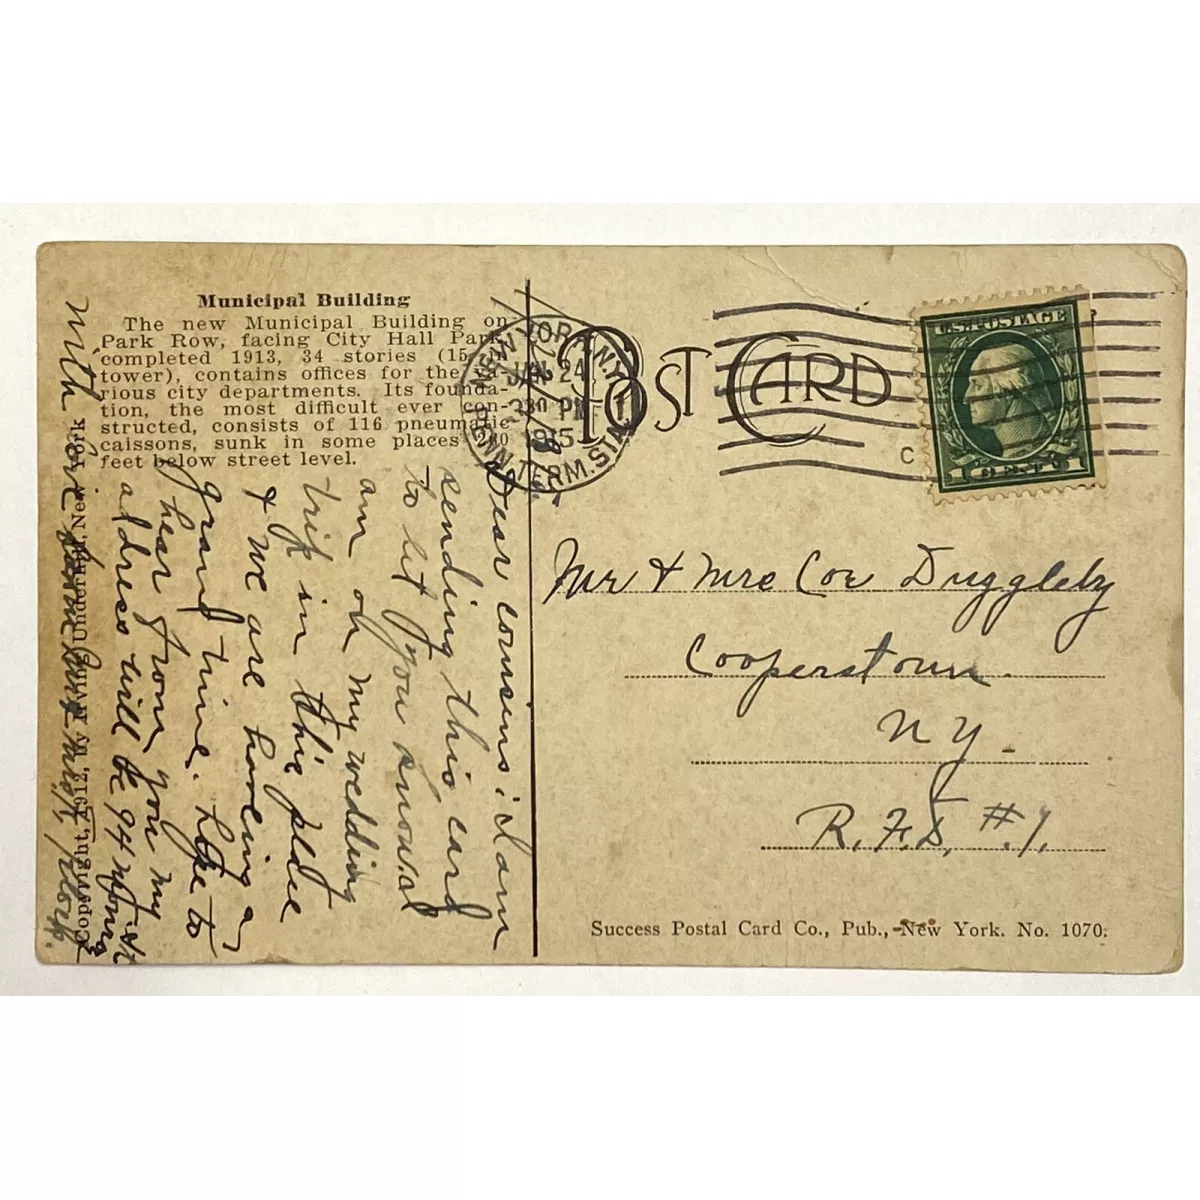 Municipal Building
The new Municipal Building on
Park Row, facing City Hall Park,
completed 1913, 34 stories (15 in
tower), contains offices for the va-
rious city departments. Its founda-
tion, the most difficult ever con-
structed, consists of 116 pneumatic
caissons, sunk in some places
feet below street level.
Copyright, 1912, by Irving Underhill, New York
POST CARD
NEW YORK, N.Y.
PENN. TERM. STA.
JAN 24
330 PM
1915
U.S. POSTAGE
1 CENT 1
Dear cousins; i am
sending this card
to let you know
am on my wedding
trip in this place
& we are haveing a
grand time. hope to
hear from you my
address will be 94
with
Mr & Mrs Coe Duggleby
Cooperstown
NY.
R.F.D. #1.
Success Postal Card Co., Pub., New York. No. 1070.